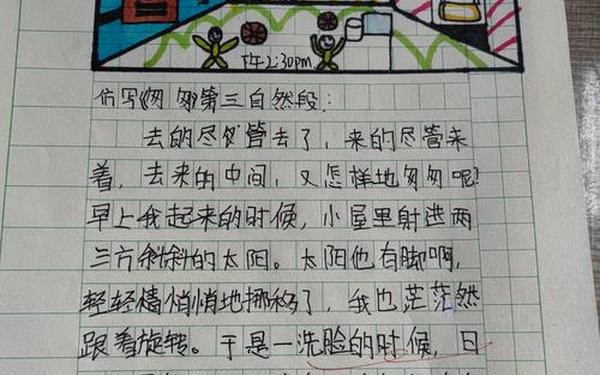 下午2:30pm.
仿写《匆匆》第三自然段：
去的尽管去了，来的尽管来
着，去来的中间，又怎样地匆匆呢？
早上我起来的时候，小屋里射进两
三方斜斜的太阳。太阳他有脚啊，
轻轻悄悄地挪移了，我也茫茫然
跟着旋转。于是一洗脸的时候，日